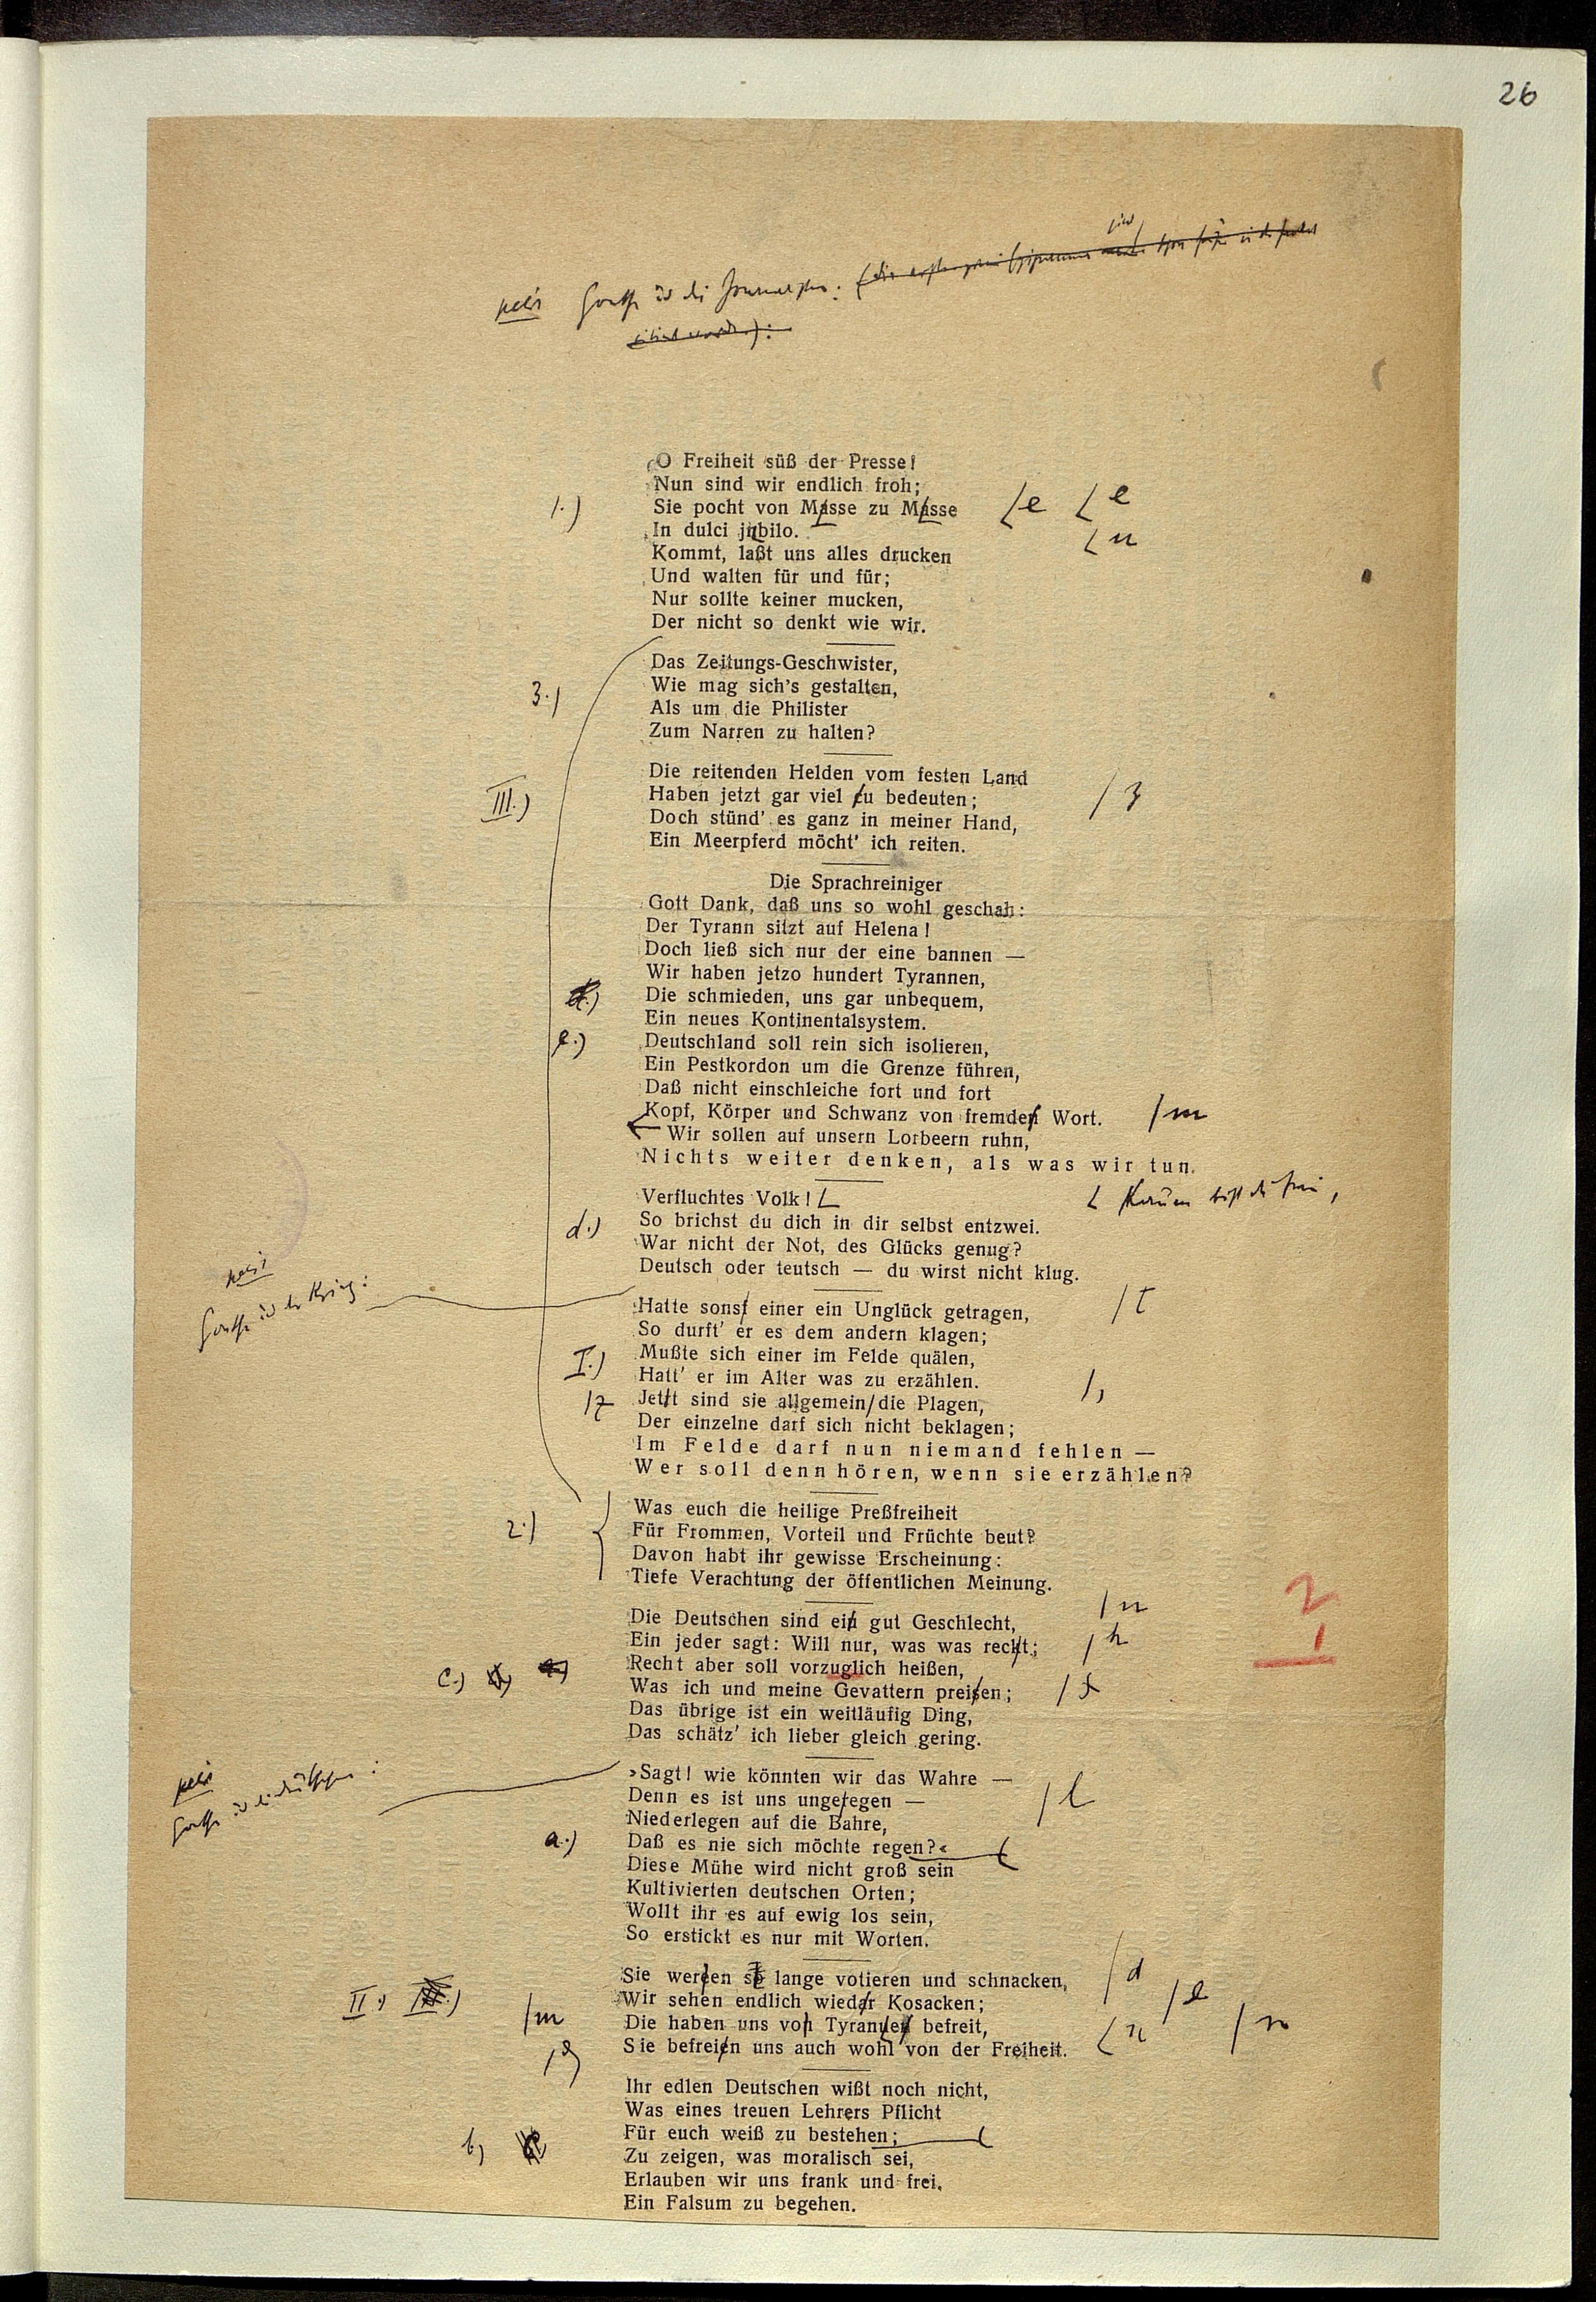 26
Goethe und die Journalisten:
O Freiheit süß der Presse!
Nun sind wir endlich froh;
1.) Sie pocht von Masse zu Masse e e
In dulci jnbilo. u
Kommt, laßt uns alles drucken
Und walten für und für;
Nur sollte keiner mucken,
Der nicht so denkt wie wir.
Das Zeitungs-Geschwister,
3.) Wie mag sich's gestalten,
Als um die Philister
Zum Narren zu halten?
Die reitenden Helden vom festen Land
III.) Haben jetzt gar viel zu bedeuten; z
Doch stünd' es ganz in meiner Hand,
Ein Meerpferd möcht' ich reiten.
Die Sprachreiniger
Gott Dank, daß uns so wohl geschah:
Der Tyrann sitzt auf Helena!
Doch ließ sich nur der eine bannen —
Wir haben jetzo hundert Tyrannen,
Die schmieden, uns gar unbequem,
Ein neues Kontinentalsystem.
e.) Deutschland soll rein sich isolieren,
Ein Pestkordon um die Grenze führen,
Daß nicht einschleiche fort und fort
Kopf, Körper und Schwanz von fremden Wort. m
Wir sollen auf unsern Lorbeern ruhn,
Nichts weiter denken, als was wir tun.
Verfluchtes Volk! Kaum bist du frei,
d.) So brichst du dich in dir selbst entzwei.
War nicht der Not, des Glücks genug?
Deutsch oder teutsch — du wirst nicht klug.
petit
Goethe und der Krieg:
Hatte sonst einer ein Unglück getragen, t
So durft' er es dem andern klagen;
I.) Mußte sich einer im Felde quälen,
Hatt' er im Alter was zu erzählen.
z Jettt sind sie allgemein die Plagen, ,
Der einzelne darf sich nicht beklagen;
Im Felde darf nun niemand fehlen —
Wer soll denn hören, wenn sie erzählen?
Was euch die heilige Preßfreiheit
2.) Für Frommen, Vorteil und Früchte beut?
Davon habt ihr gewisse Erscheinung:
Tiefe Verachtung der öffentlichen Meinung.
Die Deutschen sind ein gut Geschlecht, n
Ein jeder sagt: Will nur, was was recht; h
c.) Recht aber soll vorzuglich heißen,
Was ich und meine Gevattern preisen; s
Das übrige ist ein weitläufig Ding,
Das schätz' ich lieber gleich gering.
2
1
petit
Goethe und die Deutschen:
»Sagt! wie könnten wir das Wahre —
Denn es ist uns ungelegen — l
Niederlegen auf die Bahre,
a.) Daß es nie sich möchte regen?«
Diese Mühe wird nicht groß sein
Kultivierten deutschen Orten;
Wollt ihr es auf ewig los sein,
So erstickt es nur mit Worten.
Sie werden so lange votieren und schnacken, d
II.) Wir sehen endlich wiedar Kosacken; e
m Die haben uns von Tyrannen befreit, n n
e Sie befreien uns auch wohl von der Freiheit.
Ihr edlen Deutschen wißt noch nicht,
Was eines treuen Lehrers Pflicht
b) Für euch weiß zu bestehen;
Zu zeigen, was moralisch sei,
Erlauben wir uns frank und frei,
Ein Falsum zu begehen.